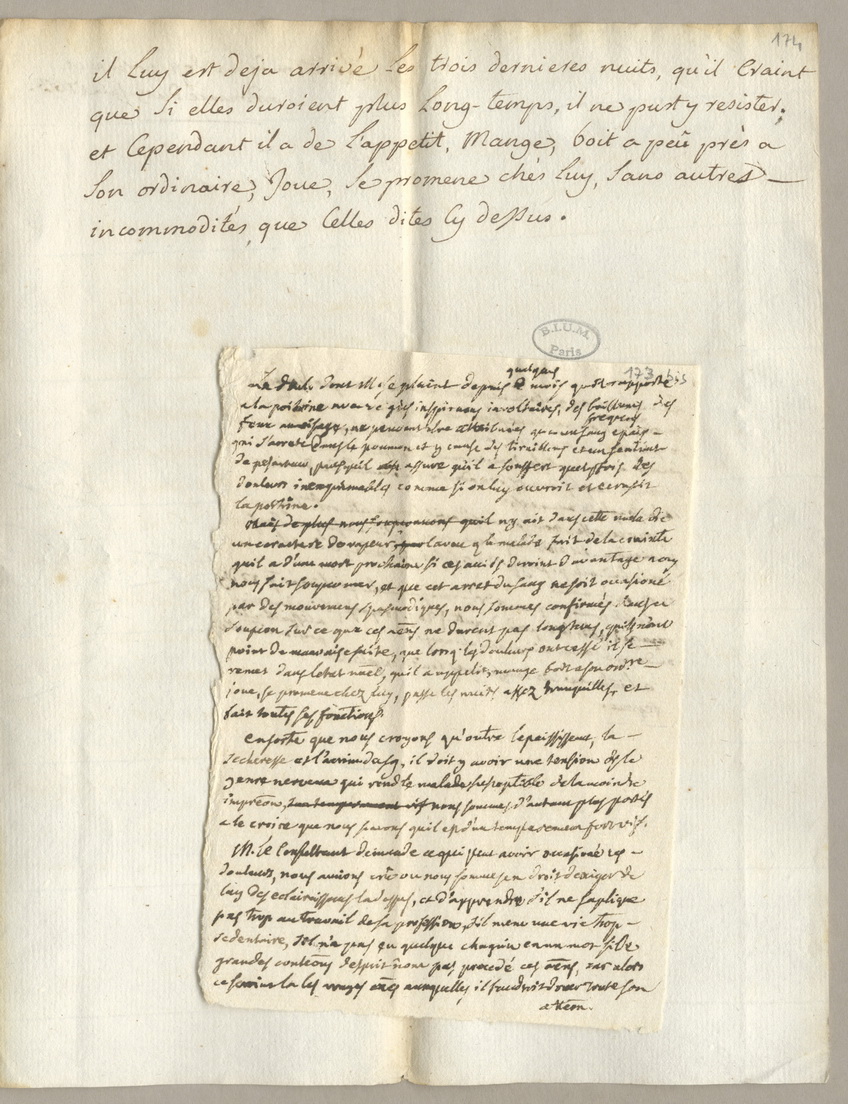 174
il Luy est deja arrivé les trois dernieres nuits, qu'il Craint
que Si elles duroient plus Long-temps, il ne pust y resister.
et Cependant il a de L'appetit, Mange, boit a peû près a
Son ordinaire, Joue, Se promene chés Luy, Sans autres
incommodités, que Celles dites Cy dessus.
B.I.U.M.
Paris
173 bis
quelques
dont M. se plaint depuis mois
a la poitrine des
frequens
qui s'arrete dans le poumon et y cause des tiraillens et un sentiment
de pesanteur, puisqu'il assure qu'il a souffert quelquefois des
douleurs inexprimables comme si on luy ouvroit et
la poitrine.
qu'il n'y ait dans cette maladie
un caractere de vapeur, l'aveu q le malade fait de la crainte
qu'il a d'une mort prochaine si ces duroient d'avantage nous
nous fait soupçonner, et que cet arret du sang ne soit occasioné
par des mouvemens spasmodiques, nous sommes confirmés
soupçon sur ce que ces ne durent pas longtems, qu'ils n'ont
point de mauvaise suite, que lorsq les douleurs ont cessé il se
remet dans l'etat qu'il a appetit, mange boit a son ordre
joue, se promene chez luy, passe les nuits assez tranquilles, et
fait toutes ses fonctions.
Ensorte que nous croyons qu'outre l'epaississemt, la
secheresse et l'acrim du sg, il doit y avoir une tension ds le
genre nerveux qui rend le malade susceptible de la moindre
impreon, nous sommes d'autant plus portés
a le croire que nous savons qu'il est d'un temperament fort vif.
M. le Consultant demande ce qui peut avoir occasioné ces
douleurs, nous aurions cru ou nous sommes en droit d'exiger de
luy des eclaircissemens la dessus, et d'apprendre s'il ne s'aplique
pas trop au travail de sa profession, s'il mene une vie trop
sedentaire, s'il n'a pas eu quelque chagrin en un mot si de
grandes d'esprit n'ont pas precedé ces car alors
ce la les auxquelles il faudroit donner toute son
atteon.